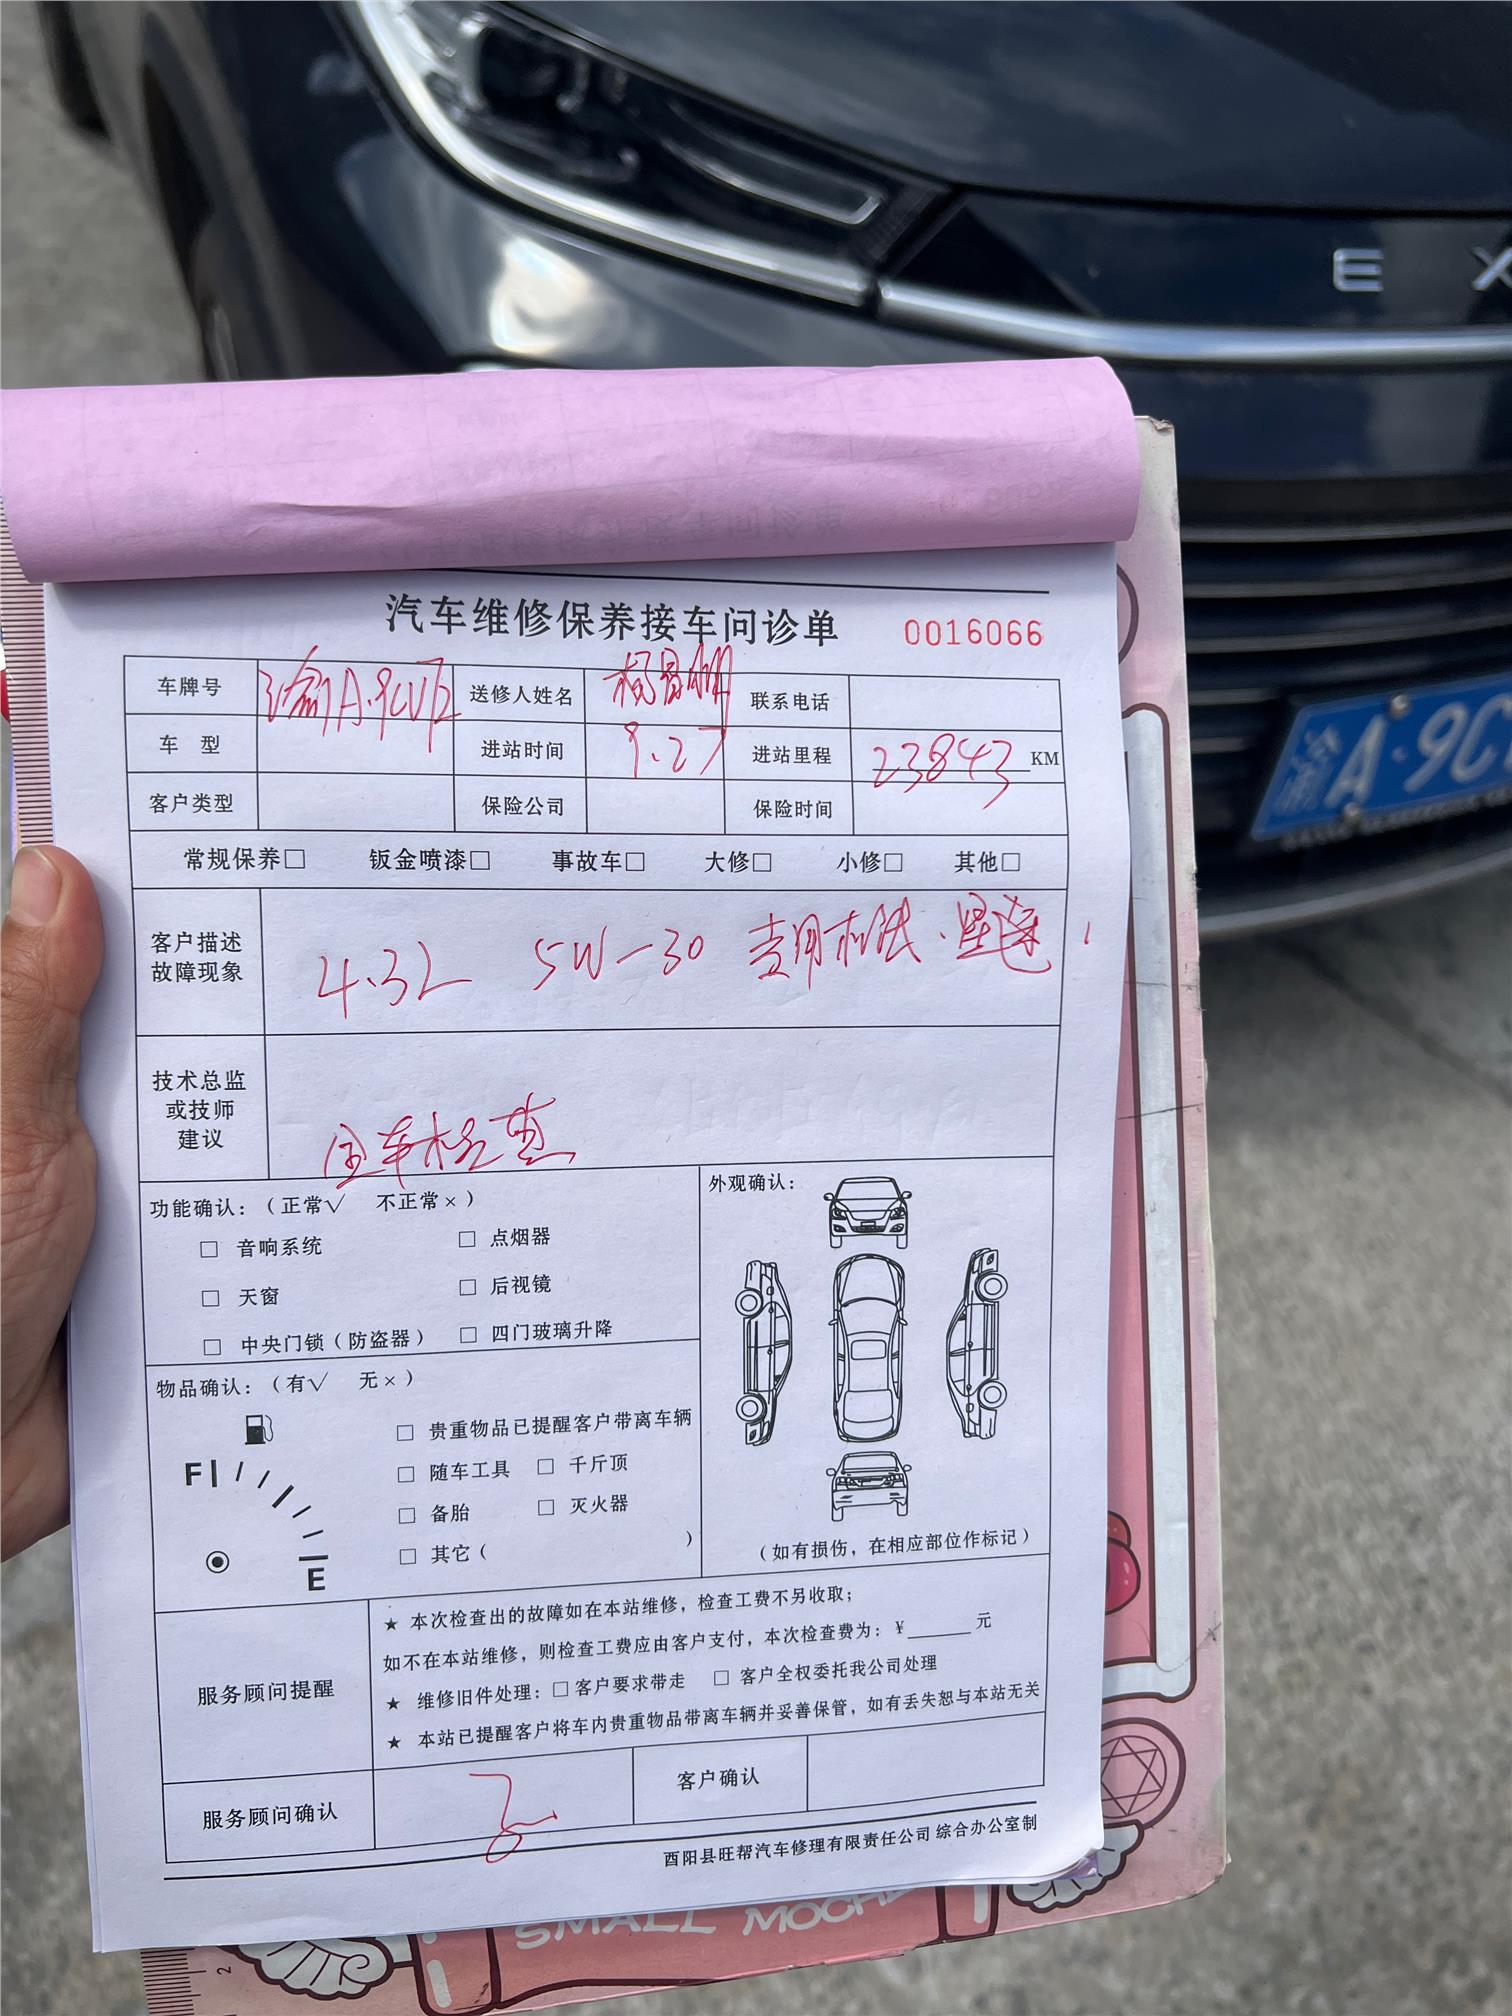 E X
汽车维修保养接车问诊单 0016066
渝A·9C
车牌号 渝A·9CU 送修人姓名 杨 联系电话
车 型 进站时间 9.27 进站里程 23843 KM
客户类型 保险公司 保险时间
常规保养□ 钣金喷漆□ 事故车□ 大修□ 小修□ 其他□
客户描述
故障现象
4.3L 5W-30 专用机
技术总监
或技师
建议
全车检查
功能确认:(正常√ 不正常×)
□ 音响系统 □ 点烟器
□ 天窗 □ 后视镜
□ 中央门锁(防盗器) □ 四门玻璃升降
外观确认:
(如有损伤,在相应部位作标记)
物品确认:(有√ 无×)
F
E
□ 贵重物品已提醒客户带离车辆
□ 随车工具 □ 千斤顶
□ 备胎 □ 灭火器
□ 其它( )
服务顾问提醒
★ 本次检查出的故障如在本站维修,检查工费不另收取;
如不在本站维修,则检查工费应由客户支付,本次检查费为:¥______元
★ 维修旧件处理:□客户要求带走 □ 客户全权委托我公司处理
★ 本站已提醒客户将车内贵重物品带离车辆并妥善保管,如有丢失恕与本站无关
服务顾问确认 客户确认
酉阳县旺帮汽车修理有限责任公司 综合办公室制
SMALL MOCH
2